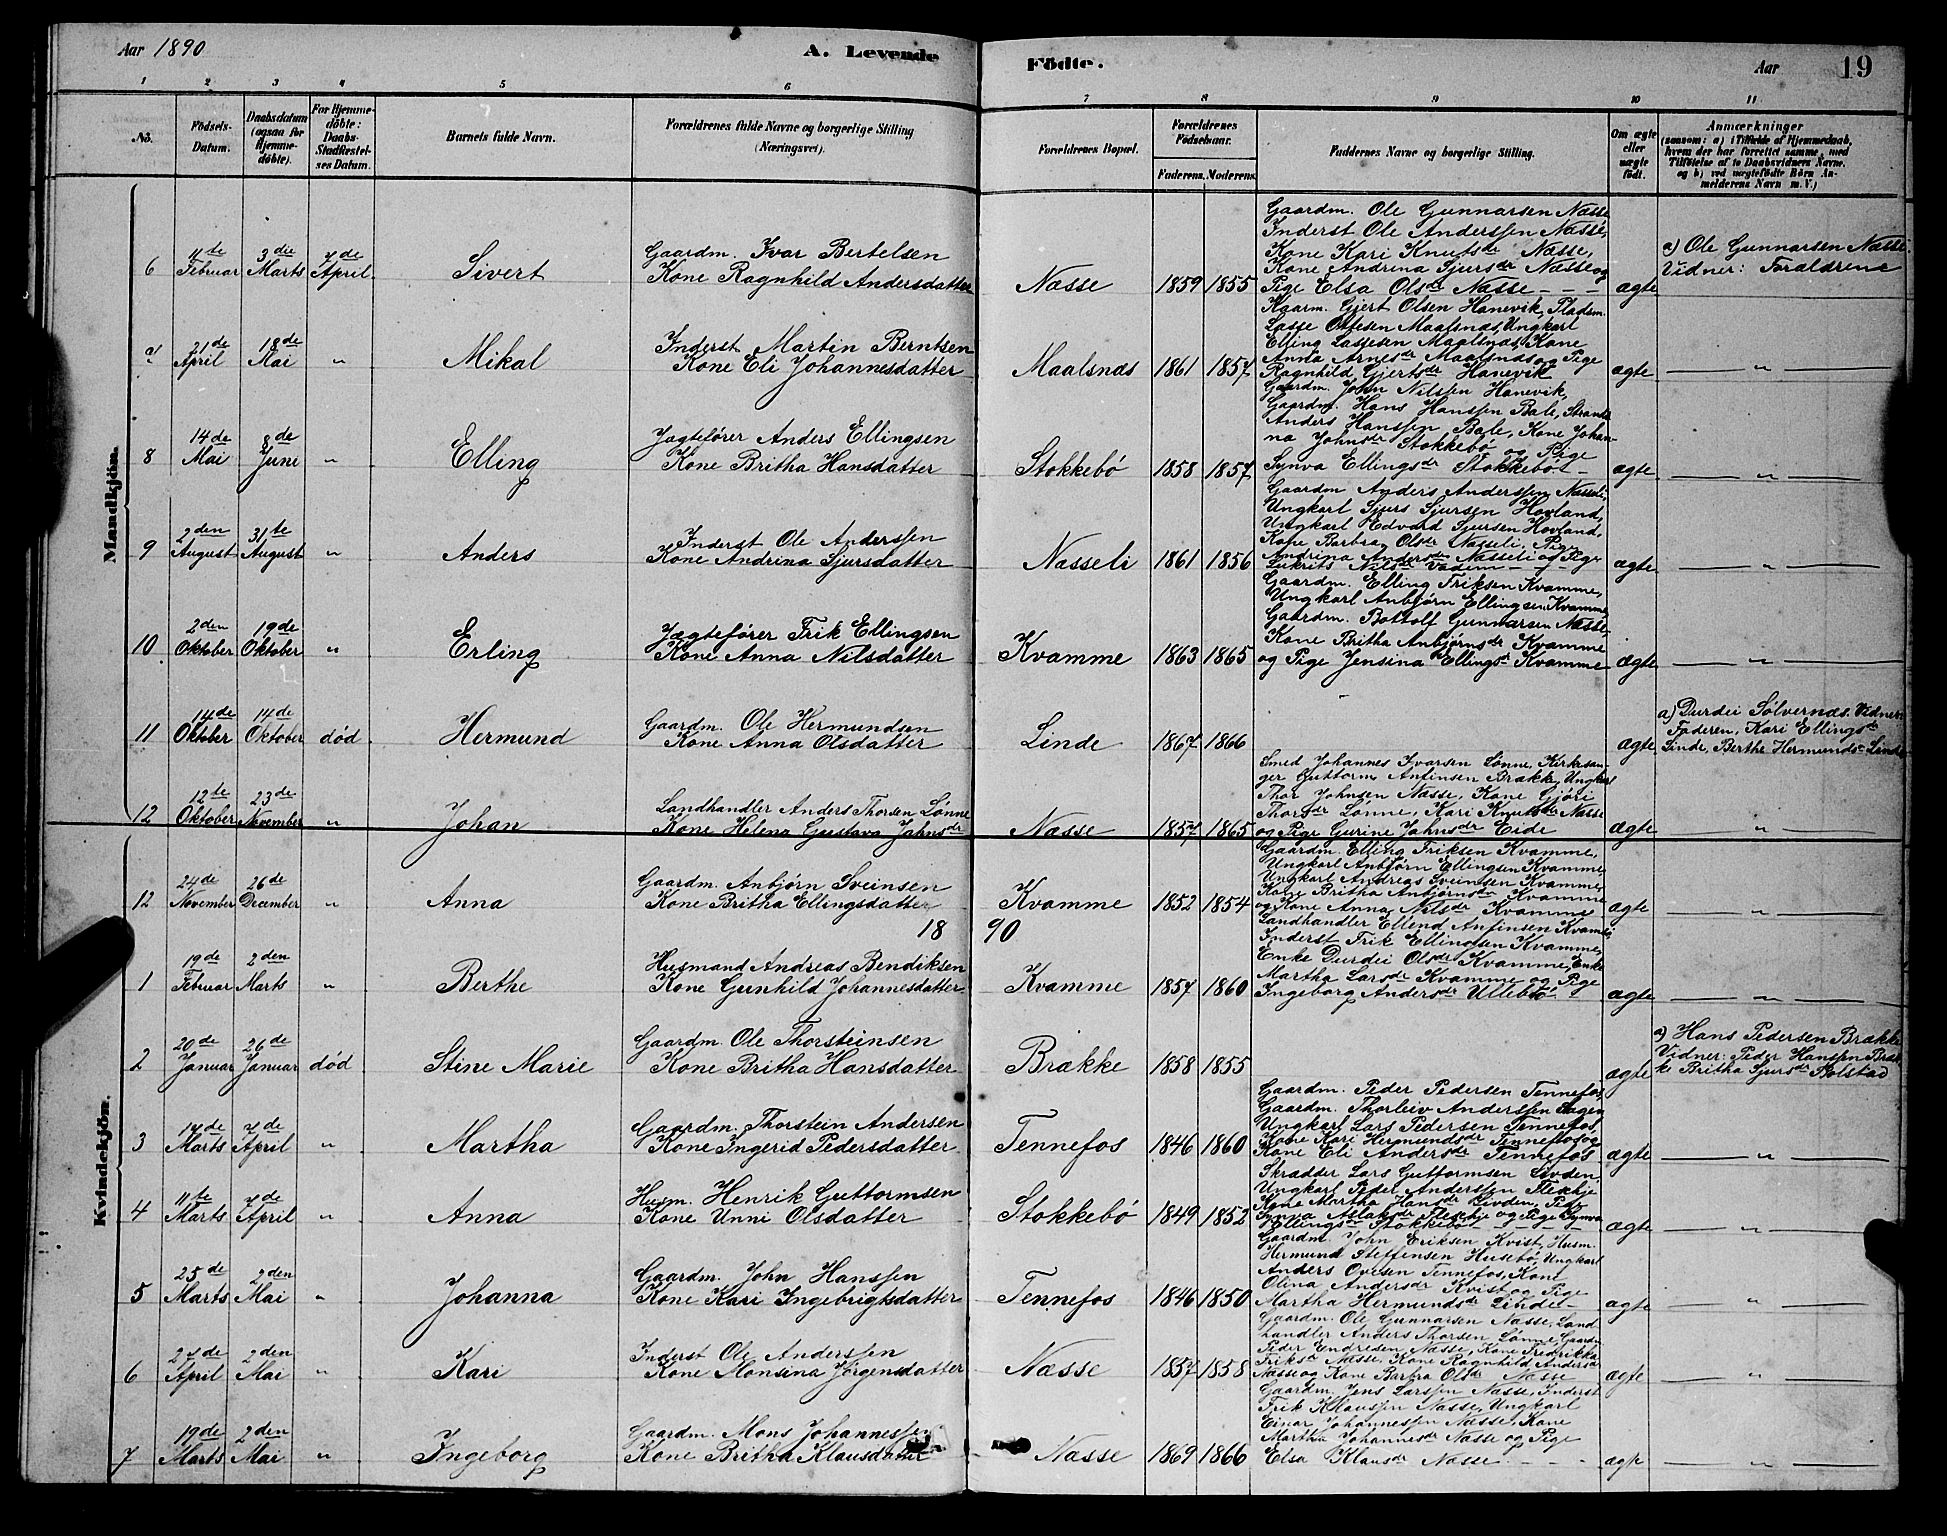 Aar 1890
A. Levende
Födte.
Aar
19
1 2 3 4 5 6 7 8 9 10 11
No.
Födsels-Datum.
Daabsdatum (ogsaa for Hjemme-döbte).
For Hjemme-döbte: Daabs-Stadfæstel-ses Datum.
Barnets fulde Navn.
Forældrenes fulde Navne og borgerlige Stilling (Næringsvei).
Forældrenes Bopæl.
Forældrenes Födselsaar.
Faderens. Moderens.
Faddernes Navne og borgerlige Stilling.
Om ægte eller uægte födt.
Anmærkninger
(saasom: a) i Tilfælde af Hjemmedaab, hvem der har forrettet samme, med Tilföielse af to Daabsvidners Navne, og b) ved uægtefödte Börn An-melderens Navn m. V.)
Mandkjön.
6
4te Februar
3die Marts
7de April
Sivert
Gaardm. Ivar Bertelsen
Kone Ragnhild Andersdatter
Næsse
1859 1855
Gaardm. Ole Gunnarsen Næsse
Inderst Ole Anderssen Næsse,
Kone Kari Knutsdr Næsse,
Kone Andrina Sjursdr Næsse og
Pige Elsa Olsdr Næsse - - -
ægte
a) Ole Gunnarsen Næsse.
Vidner: Forældrene
7
21de April
18de Mai
"
Mikal
Inderst Martin Berntsen
Kone Eli Johannesdatter
Maalsnæs
1861 1857
Kaarm. Gjert Olsen Hanevik, Pladsm.
Lasse Ottesen Maalsnæs, Ungkarl
Elling Lassesen Maalsnæs, Kone
Anna Arnesdr Maalsnæs og Pige
Ragnhild Gjertsdr Hanevik
ægte
"
8
14de Mai
8de Juni
"
Elling
Jægtefører Anders Ellingsen
Kone Britha Hansdatter
Stokkebø
1858 1857
Gaardm. John Nilssen Hanevik,
Gaardm. Hans Hanssen Bale, Strands
Anders Hanssen Bale, Kone Johan-
na Johnsdr Stokkebø og Pige
Synva Ellingsdr Stokkebø -
ægte
"
9
2den August
31te August
"
Anders
Inderst Ole Anderssen
Kone Andrina Sjursdatter
Næsseli
1861 1856
Gaardm Anders Anderssen Næsseli,
Ungkarl Sjurs Sjursen Hovland,
Ungkarl Edvard Sjursen Hovland,
Kone Barbra Olsdr Næsseli, Pige
Andrina Andersdr Næsseli og Pige
Lukrits Nilsdr Vadem - - -
ægte
"
10
2den Oktober
19de Oktober
"
Erling
Jægtefører Erik Ellingsen
Kone Anna Nilsdatter
Kvamme
1863 1865
Gaardm. Elling Eriksen Kvamme,
Ungkarl Anbjørn Ellingsen Kvamme
Gaardm. Bottolf Gunnarsen Næsse,
Kone Britha Anbjørnsdr Kvamme
og Pige Jensina Ellingsdr Kvamme
ægte
"
11
14de Oktober
14de Oktober
død
Hermund
Gaardm. Ole Hermundsen
Kone Anna Olsdatter
Linde
1867 1866
ægte
a) Durdei Sølvernæs. Vidner
Faderen, Kari Ellingsdr
Linde, Berthe Hermundsdr Linde
12
12te Oktober
23de November
"
Johan
Landhandler Anders Thorsen Lønne
Kone Helena Gustava Johnsdr
Næsse
1857 1865
Smed Johannes Ivarsen Lønne, Kirkesan-
ger Guttorm Anfinsen Brække, Ungkarl
Thor Johnsen Næsse, Kone Gjøri
Thorsdr Lønne, Kari Knutsdr Næsse
og Pige Gurine Johnsdr Eide
ægte
"
Kvindekjön.
12
24de November
26de December
"
Anna
Gaardm. Anbjørn Sveinsen
Kone Britha Ellingsdatter
Kvamme
1852 1854
Gaardm. Elling Eriksen Kvamme,
Ungkarl Anbjørn Ellingsen Kvamme
Ungkarl Andreas Sveinsen Kvamme
Kone Britha Anbjørnsdr Kvamme
og Kone Anna Nilsdr Kvamme
ægte
"
1890
1
19de Februar
2den Marts
"
Berthe
Husmand Andreas Bendiksen
Kone Gunhild Johannesdatter
Kvamme
1857 1860
Landhandler Ellend Anfinsen Kvamme
Inderst Erik Ellingsen Kvamme,
Enke Durdei Olsdr Kvamme, Enke
Martha Larsdr Kvamme og Pige
Ingeborg Andersdr Ullebø
ægte
"
2
20de Januar
26de Januar
død
Stine Marie
Gaardm. Ole Thorsteinsen
Kone Britha Hansdatter
Brække
1858 1855
ægte
a) Hans Pedersen Brække
Vidner: Peder Hanssen Bræk-
ke Britha Sjursdr Solstad
3
17de Marts
7de April
"
Martha
Gaardm. Thorstein Andersen
Kone Ingerid Pedersdatter
Tennefos
1846 1860
Gaardm. Peder Pedersen Tennefos,
Gaardm. Thorleiv Anderssen Hagen
Ungkarl Lars Pedersen Tennefos,
Kone Kari Hermundsdr Tennefos og
Kone Eli Andersdr Tennefos
ægte
"
4
11te Marts
7de April
"
Anna
Husm. Henrik Guttormsen
Kone Unni Olsdatter
Stokkebø
1849 1852
Skrædder Lars Guttormsen Livden,
Ungkarl Peder Anderssen Flekkje
Kone Martha Hansdr Livden, Pige
Synva Aslaksdr Flekkje og Pige Synva
Ellingsdr Stokkebø - - -
ægte
"
5
25de Marts
2den Mai
"
Johanna
Gaardm. John Hanssen
Kone Kari Ingebrigtsdatter
Tennefos
1846 1850
Gaardm. John Eriksen Kvist, Husm.
Hermund Steffensen Husebø, Ungkarl
Anders Ovesen Tennefos, Kone
Olina Andersdr Kvist og Pige
Martha Hermundsdr Linde -
ægte
"
6
27de April
2den Mai
"
Kari
Inderst Ole Anderssen
Kone Monsina Jörgensdatter
Næsse
1857 1858
Gaardm. Ole Gunnarsen Næsse, Land
handler Anders Thorsen Lønne, Gaardm
Peder Endresen Næsse, Kone Fredrikka
Eriksdr Næsse, Kone Ragnhild Andersdr
Næsse og Kone Barbra Olsdr Næsse
ægte
"
7
19de Marts
2den Mai
"
Ingeborg
Gaardm. Mons Johannessen
Kone Britha Klausdatter
Næsse
1869 1866
Gaardm. Jens Larssen Næsse, Inderst
Erik Klaussen Næsse, Ungkarl
Einar Johannessen Næsse, Kone
Martha Johannesdr Næsse og Pige
Elsa Klausdr Næsse - - -
ægte
"